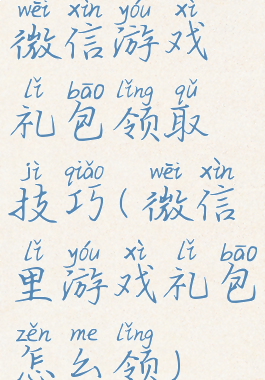 wēi xìn yóu xì
微信游戏
lǐ bāo lǐng qǔ
礼包领取
jì qiǎo wēi xìn
技巧(微信
lǐ yóu xì lǐ bāo
里游戏礼包
zěn me lǐng
怎么领)